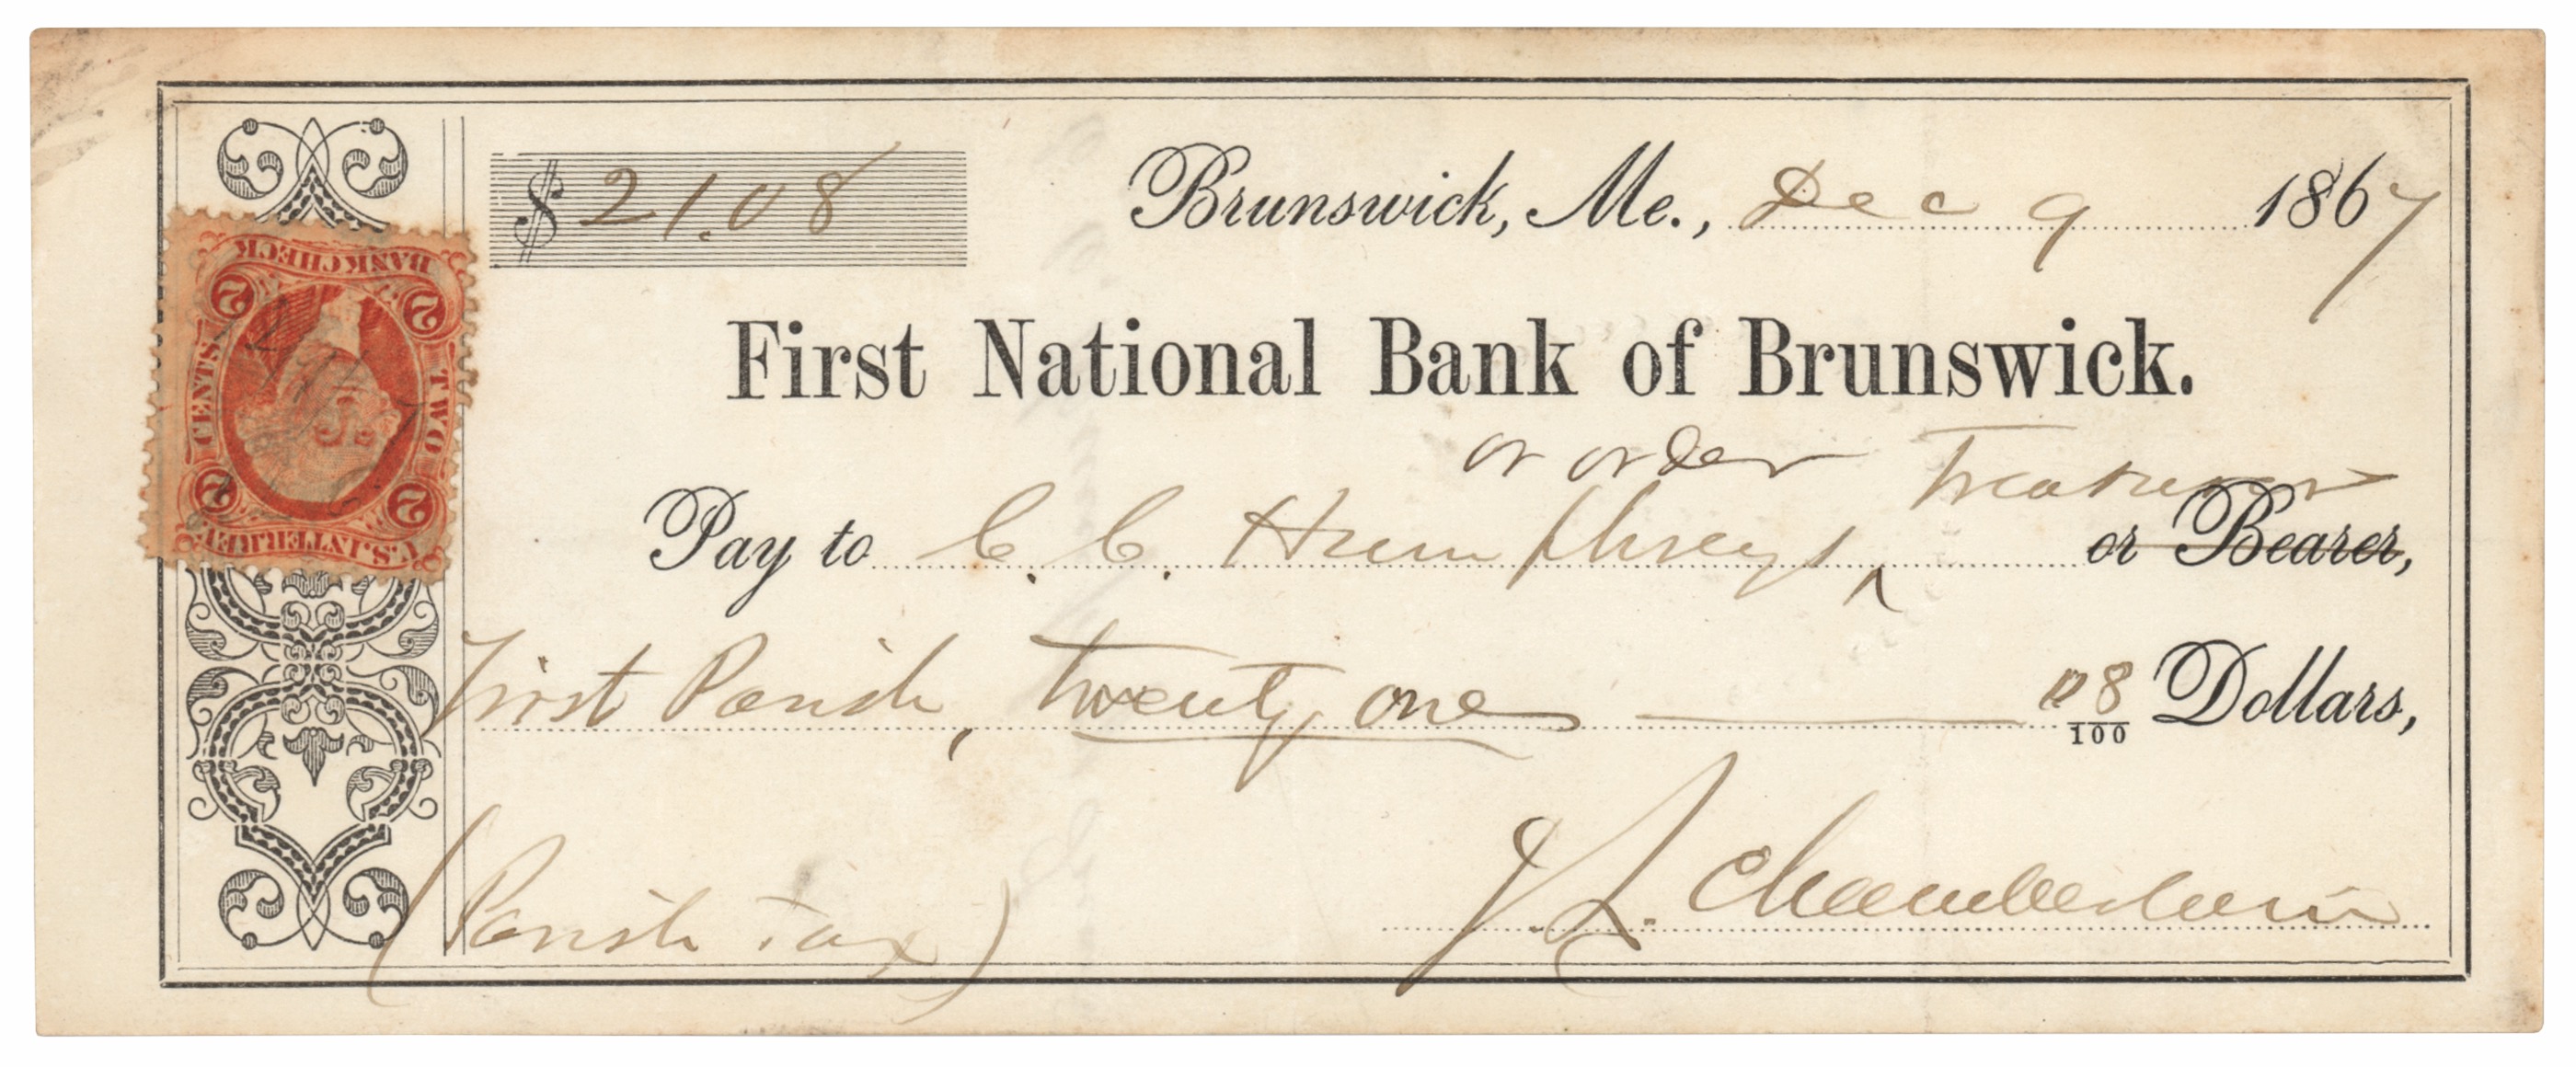 $ 21.08
Brunswick, Me., Dec 9 1867
First National Bank of Brunswick.
or order Treasurer
Pay to C. C. Humphreys ^ or Bearer,
First Parish, twenty one 08/100 Dollars,
(Parish Tax)
J. L. Chamberlain
U.S. INTER. REV.
2 2
TWO CENTS
2 2
BANK CHECK